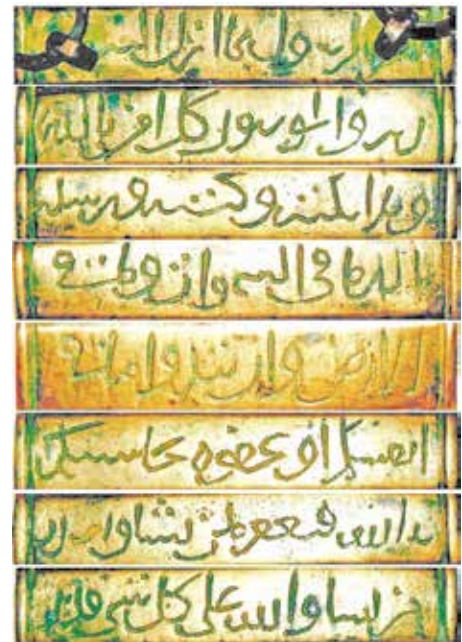 الرسول بما انزل
ربه والمومنون كل امن بالله
وملائكته وكتبه ورسله
لله ما في السموات وما في
الارض وان تبدوا ما في
انفسكم او تخفوه يحاسبكم
به الله فيغفر لمن يشا
من يشا والله على كل شي قدير